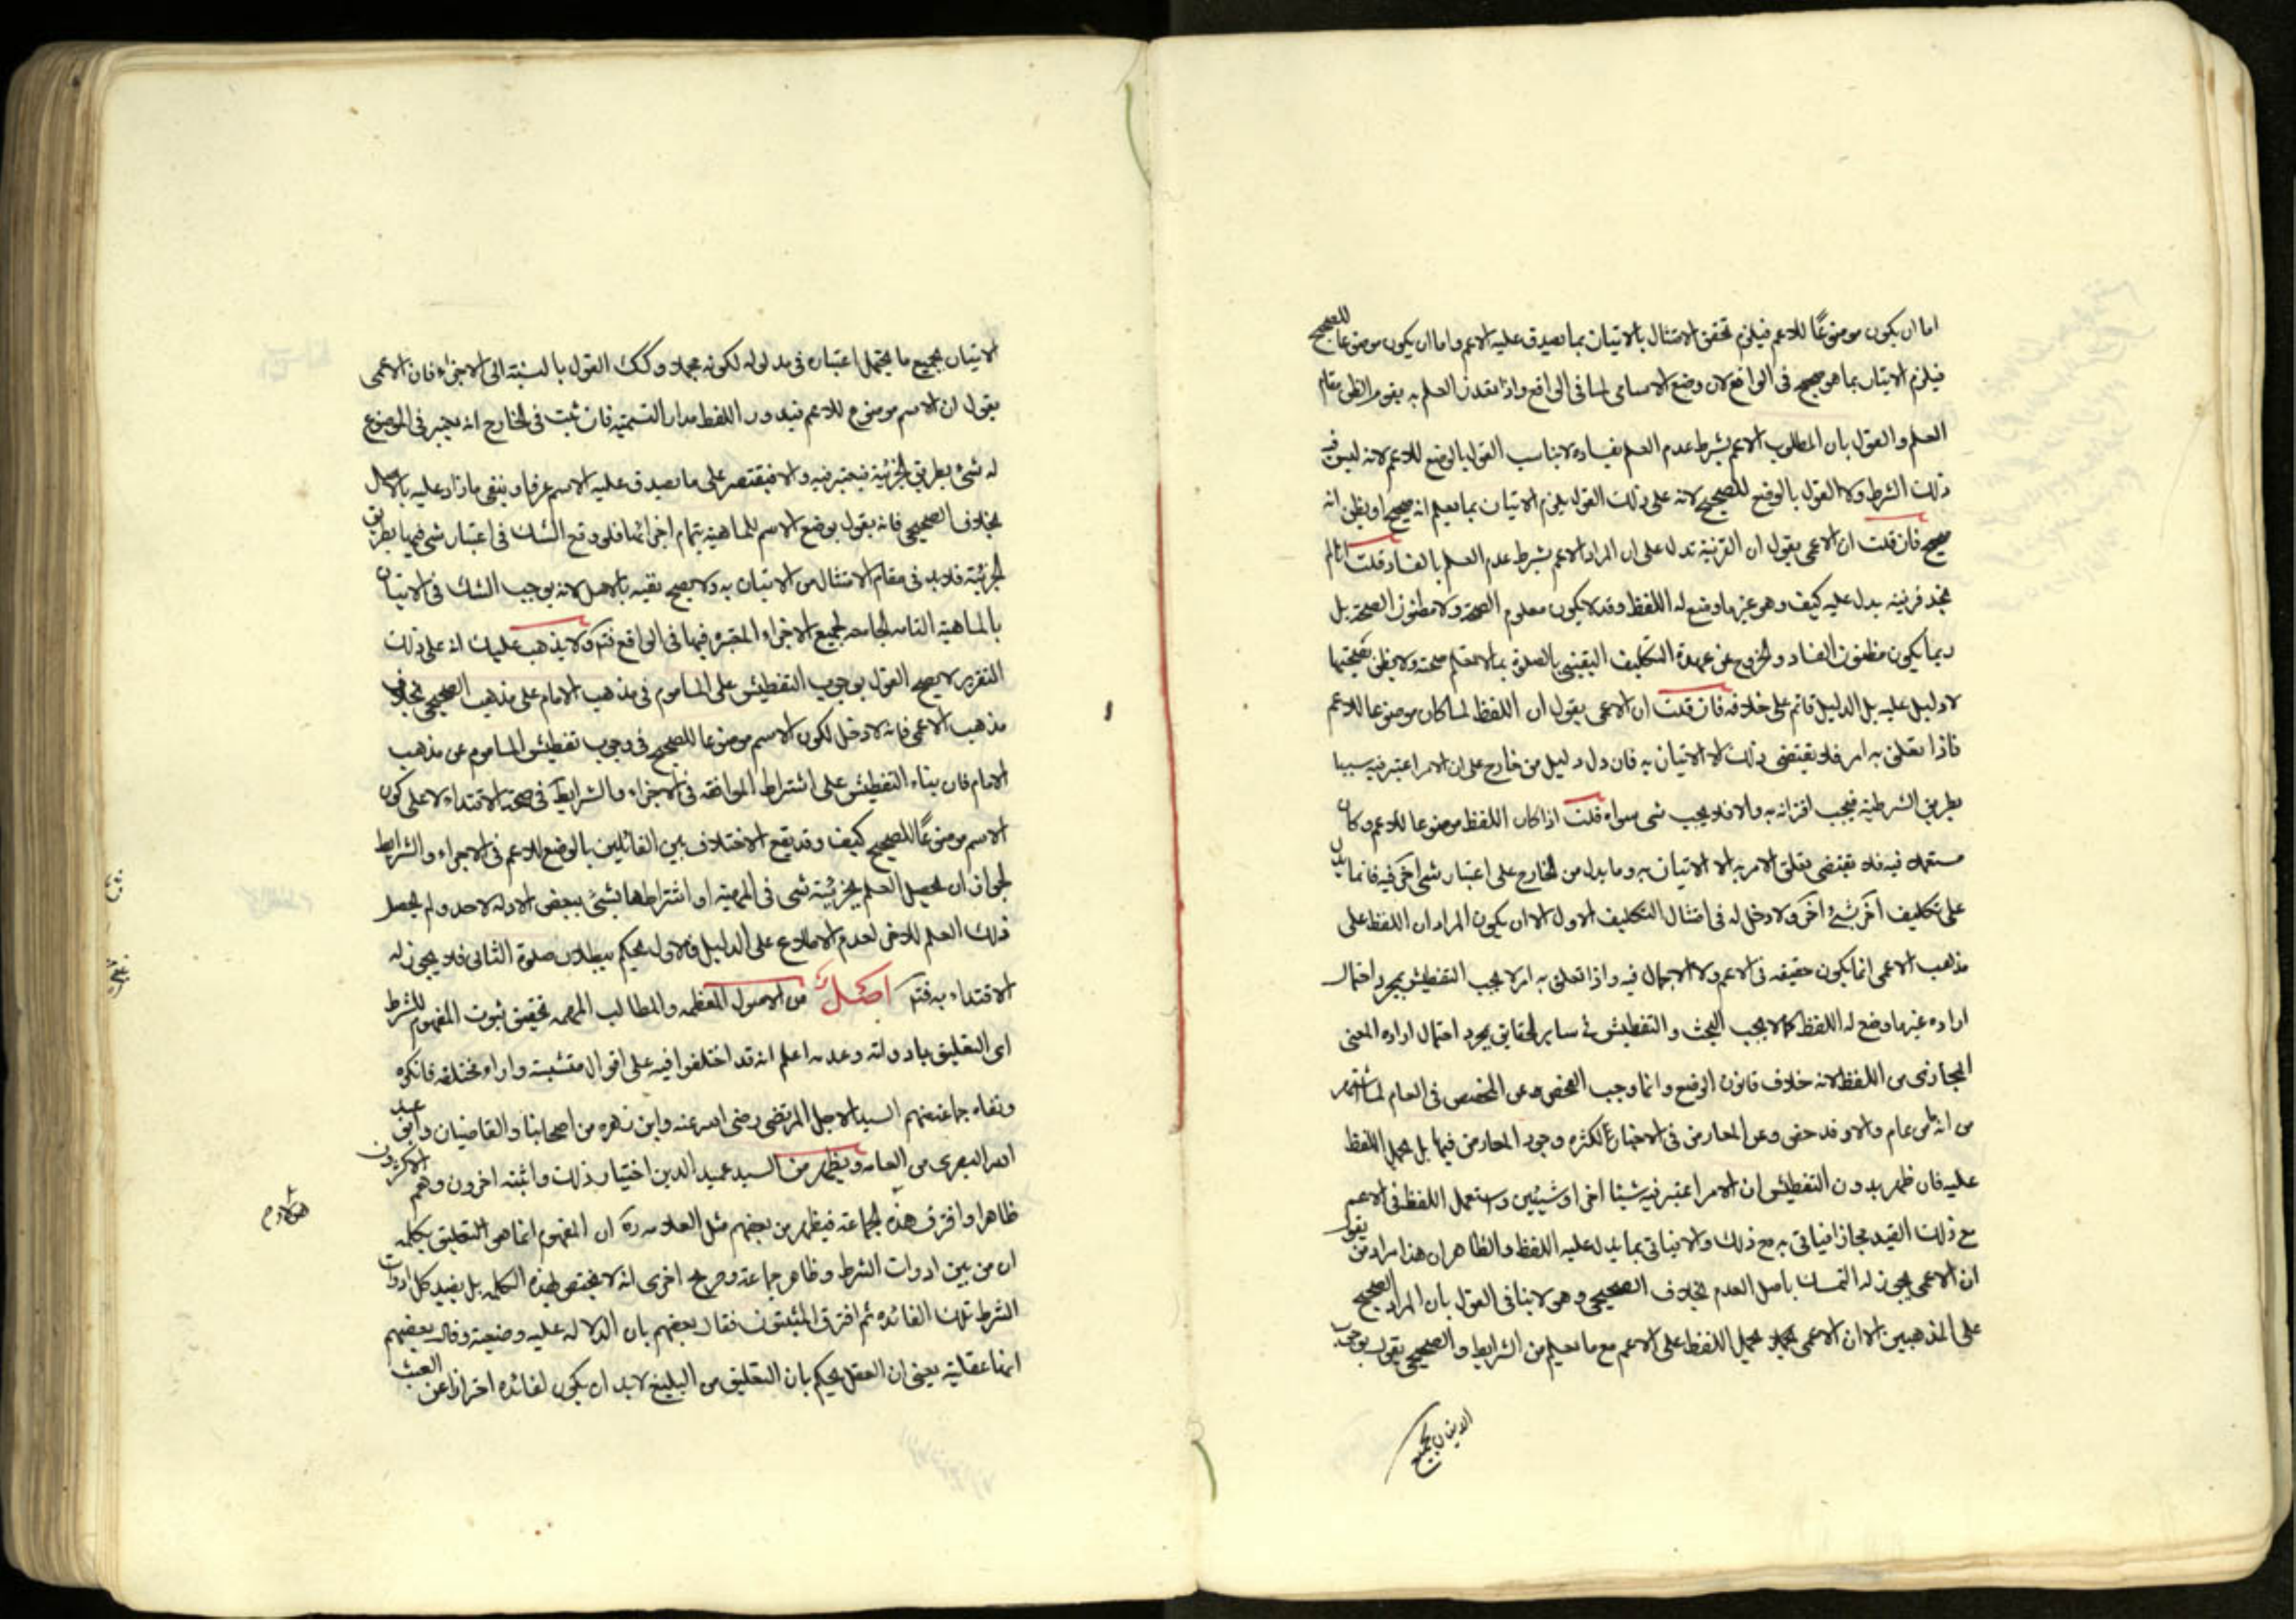 اما ان يكون موضوعًا للاعم فيلزم تحقق الامتثال بالاتيان بما يصدق عليه الاعم واما ان يكون موضوعا للصحيح
فيلزم الاتيان بما هو صحيح فى الواقع لان وضع الاسامى لما فى الواقع واذا تعذر العلم به يقوم الظن مقام
العلم والقول بان المطلوب الاعم بشرط عدم العلم بفساده لا يناسب القول بالوضع للاعم لانه ليس فيه
ذلك الشرط ولا القول بالوضع للصحيح لانه على ذلك القول يلزم الاتيان بما يعلم انه صحيح او يظن انه
صحيح فان قلت ان الاعمى يقول ان القرينة تدل على ان المراد الاعم بشرط عدم العلم بالفساد قلت انا لم
نجد قرينة يدل عليه كيف وهو غير ما وضع له اللفظ وقد لا يكون معلوم الصحة ولا مظنون الصحة بل
ربما يكون مظنون الفساد والخروج عن عهدة التكليف اليقينى بالصلوة بما لا يعلم صحته ولا يظن صحتها
لا دليل عليه بل الدليل قائم على خلافه فان قلت ان الاعمى يقول ان اللفظ لما كان موضوعا للاعم
فاذا تعلق به امر فلا يقتضى ذلك الا الاتيان به فان دل دليل من خارج على ان الامر اعتبر فيه سببا
بطريق الشرطية فيجب اقترانه به والا فلا يجب شى سواه قلت اذا كان اللفظ موضوعا للاعم وكان
مستعملا فيه فلا يقتضى تعلق الامر به الا الاتيان به وما يدل من الخارج على اعتبار شى اخر فيه فانما يدل
على تكليف آخر بشئ آخر ولا دخل له فى امتثال التكليف الاول الا ان يكون المراد ان اللفظ على
مذهب الاعمى انما يكون حقيقه فى الاعم ولا اجمال فيه واذا تعلق به امر لا يجب التفطيش بمجرد احتمال
اراده غير ما وضع له اللفظ كما لا يجب البحث والتفطيش فى ساير الحقايق بمجرد احتمال اراده المعنى
المجازى من اللفظ لانه خلاف قانون الوضع وانما وجب الفحص عن المخصص فى العام لما اشتهر
من انه ما من عام والا وقد خص وعن المعارض فى الاخبار لكثره وجود المعارض فيها بل يحمل اللفظ
عليه فان ظهر بدون التفطيش ان الامر اعتبر فيه شيئا اخر او شيئين واستعمل اللفظ فى الاعم
مع ذلك القيد مجازا فياتى به مع ذلك والا فياتى بما يدل عليه اللفظ والظاهر ان هذا مراد من يقول
ان الاعمى يجوز له التمسك باصل العدم بخلاف الصحيحى وهو لا ينافى القول بان المراد الصحيح
على المذهبين الا ان الاعمى يحمل اللفظ على الاعم مع ما يعلم من الشرايط والصحيحى يقول بوجوب
الاتيان بجميع
الاتيان بجميع ما يحتمل اعتباره فى مدلوله لكونه مجملا وكك القول بالنسبة الى الاجزاء فان الاعمى
يقول ان الاسم موضوع للاعم فيدور اللفظ مدار التسمية فان ثبت فى الخارج انه يعتبر فى الموضوع
له شئ بطريق الجزئية فيعتبر فيه والا فيقتصر على ما يصدق عليه الاسم عرفا وينفى ما زاد عليه بالاصل
بخلاف الصحيحى فانه يقول بوضع الاسم للماهية بتمام اجزائها فلو وقع الشك فى اعتبار شى فيها بطريق
الجزئية فلا بد فى مقام الامتثال من الاتيان به ولا يصح نفيه بالاصل لانه يوجب الشك فى الاتيان
بالماهية التامه الجامعه لجميع الاجزاء المعتبره فيها فى الواقع فتم ولا يذهب عليك انه على ذلك
التقرير لا يصح القول بوجوب التفطيش على الماموم فى مذهب الامام على مذهب الصحيحى بخلاف
مذهب الاعمى فانه لا دخل لكون الاسم موضوعا للصحيح فى وجوب تفطيش الماموم عن مذهب
الامام فان بناء التفطيش على اشتراط الموافقه فى الاجزاء والشرايط فى صحة الاقتداء لا على كون
الاسم موضوعًا للصحيح كيف وقد يقع الاختلاف بين القائلين بالوضع للاعم فى الاجزاء والشرايط
لجواز ان يحصل العلم بجزئية شى فى المهية او اشتراطها بشئ ببعض الادله لاحد ولم يحصل
ذلك العلم للاخر لعدم الاطلاع على الدليل فالاول يحكم ببطلان صلوة الثانى فلا يجوز له
الاقتداء به فتم اصل من الاصول المعظمه والمطالب المهمه تحقيق ثبوت المفهوم للشرط
اى التعليق بادواته وعدمه اعلم انه قد اختلفوا فيه على اقوال متشتتة واراء مختلفه فانكره
ونفاه جماعة منهم السيد الاجل المرتضى رضى الله عنه وابن زهره من اصحابنا والقاضيان وابو عبد
الله البصرى من العامه ويظهر من السيد عميد الدين اختيار ذلك واثبته اخرون وهم الاكثرون
ظاهرا وافترق هذه الجماعة فيظهر من بعضهم مثل العلامه ره ان المفهوم انما هو التعليق بكلمه
ان من بين ادوات الشرط وظاهر جماعة وصريح اخرى انه لا يختص بهذه الكلمه بل يفيد كل ادوات
الشرط تلك الفائده ثم افترق المثبتون فقال بعضهم بان الدلاله عليه وضعية وقال بعضهم
انها عقلية بمعنى ان العقل يحكم بان التعليق من البليغ لا بد ان يكون لفائده احترازا عن العبث